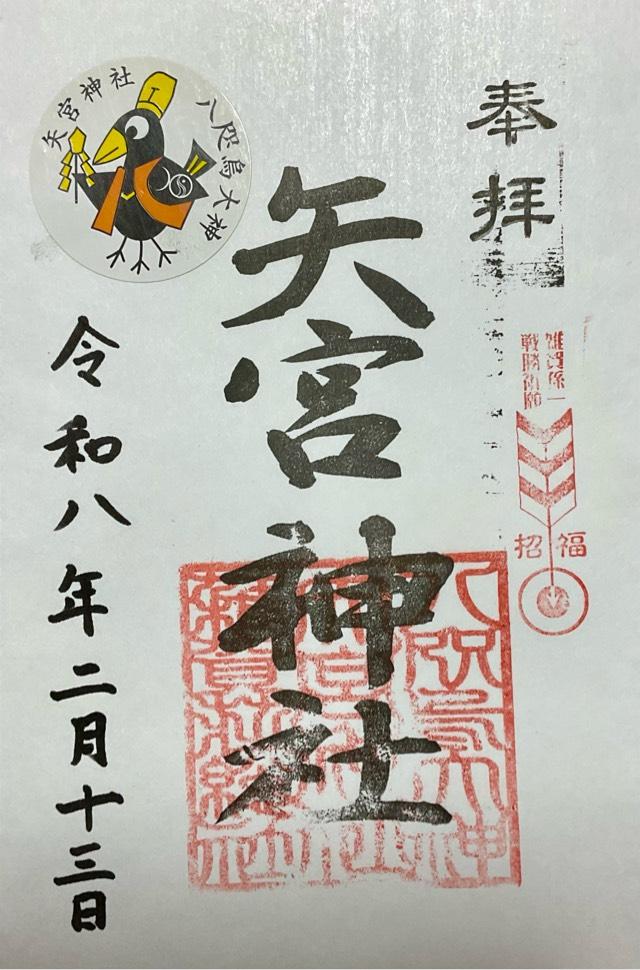 奉拝
雑賀孫一
戦勝祈願
招福
矢宮神社
八咫烏大神
矢宮神社
八咫烏大神
令和八年二月十三日